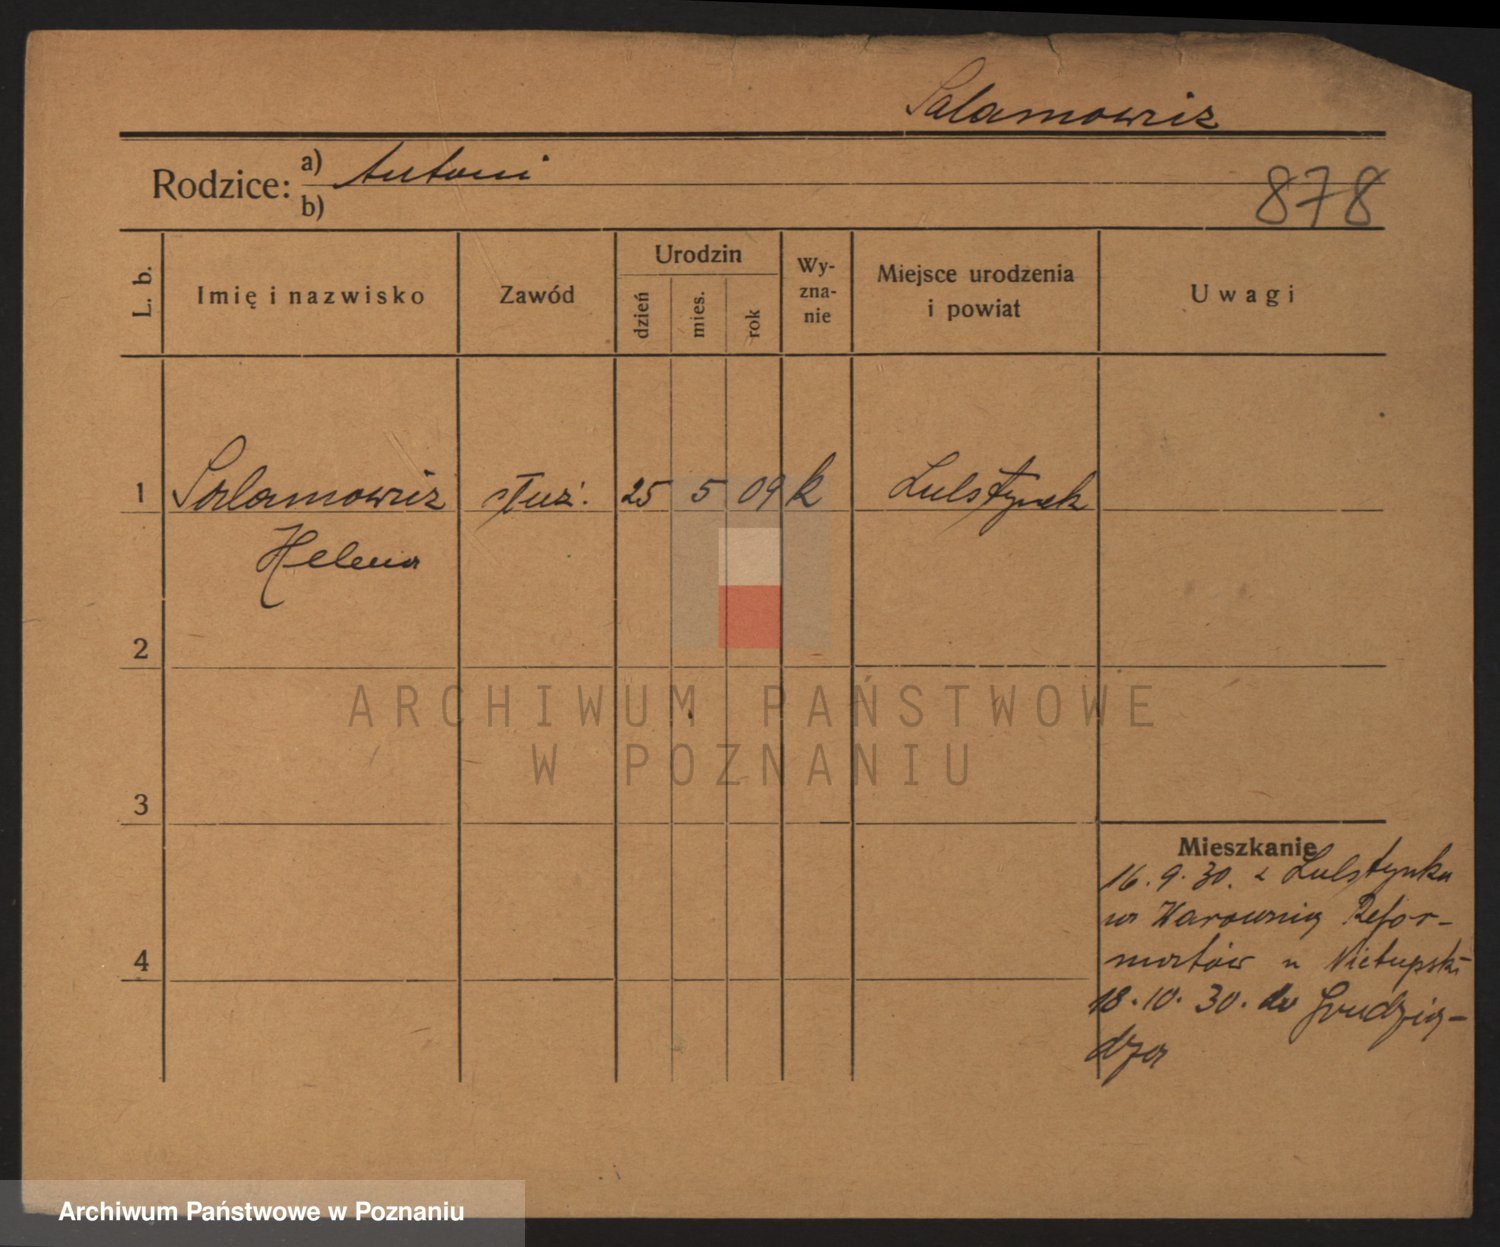 Salamowicz
Rodzice: a) Antoni
b)
878
L. b.
Imię i nazwisko
Zawód
Urodzin
dzień
mies.
rok
Wy-
zna-
nie
Miejsce urodzenia
i powiat
Uwagi
1 Salamowicz służ. 25 5 09 k Lulstynek
Helena
2
3
4
Mieszkanie
16.9.30. z Lulstynka
18.10.30. do Grudzią-
dza
ARCHIWUM PAŃSTWOWE
W POZNANIU
Archiwum Państwowe w Poznaniu